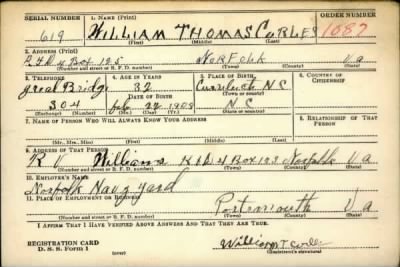 SERIAL NUMBER 1. NAME (Print) ORDER NUMBER
619 WILLIAM THOMAS CURLES 1087
(First) (Middle) (Last)
2. ADDRESS (Print)
Box 125 Norfolk Va
(Number and street or R. F. D. number) (Town) (County) (State)
3. TELEPHONE 4. AGE IN YEARS 5. PLACE OF BIRTH 6. COUNTRY OF CITIZENSHIP
Great Bridge 32 Currituck N.C
DATE OF BIRTH (Town or county)
304 Feb 22 1908 N.C
(Exchange) (Number) (Mo.) (Day) (Yr.) (State or country)
7. NAME OF PERSON WHO WILL ALWAYS KNOW YOUR ADDRESS 8. RELATIONSHIP OF THAT PERSON
(Mr., Mrs., Miss) (First) (Middle) (Last)
9. ADDRESS OF THAT PERSON
R V Williams 4 Box 123 Norfolk Va
(Number and street or R. F. D. number) (Town) (County) (State)
10. EMPLOYER'S NAME
Norfolk Navy yard
11. PLACE OF EMPLOYMENT OR BUSINESS
Portsmouth Va
(Number and street or R. F. D. number) (Town) (County) (State)
I AFFIRM THAT I HAVE VERIFIED ABOVE ANSWERS AND THAT THEY ARE TRUE.
REGISTRATION CARD
D. S. S. Form 1 (over) (Registrant's signature)
William T